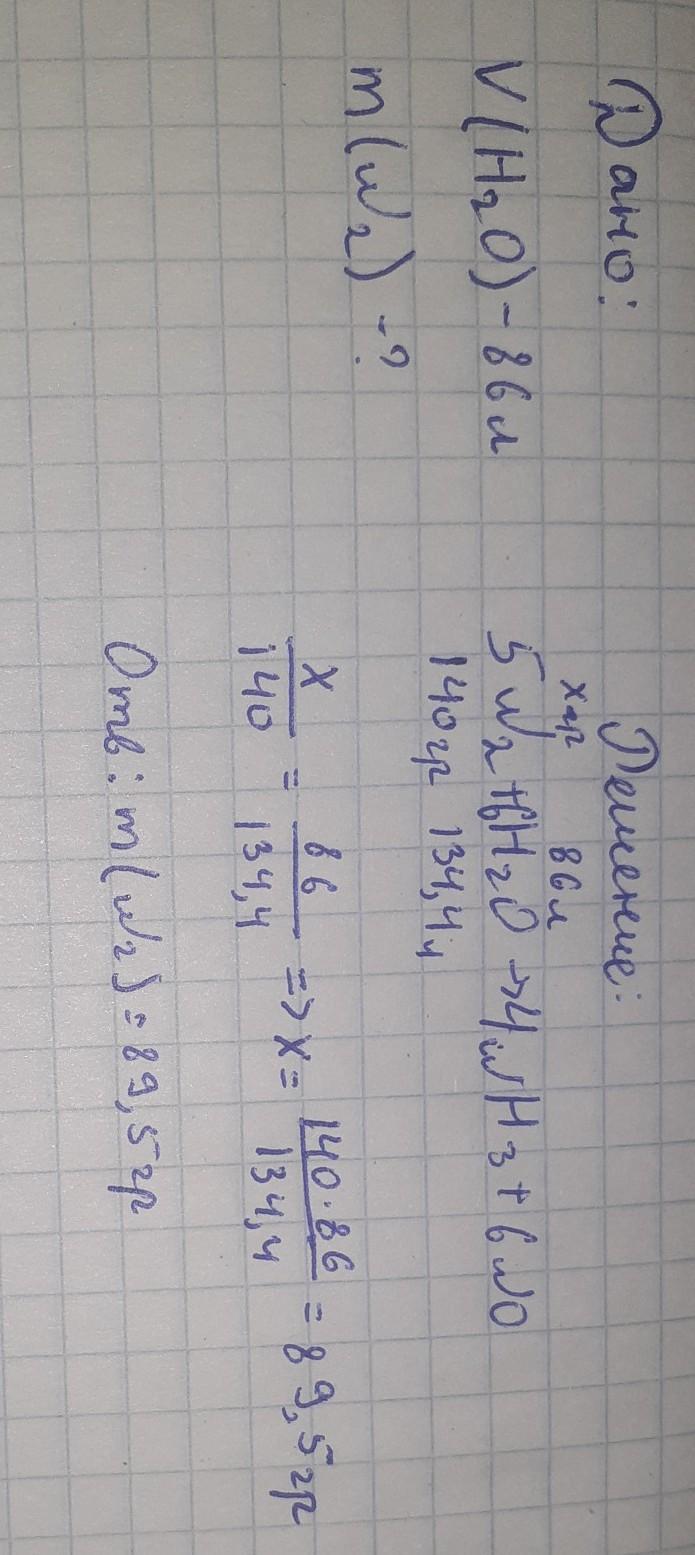 Дано:
V(H₂O) - 86л
m(N₂) - ?
Решение:
xгр 86л
5N₂ + 6H₂O → 4NH₃ + 6NO
140гр 134,4л
x/140 = 86/134,4 => x = 140·86/134,4 = 89,5гр
Отв: m(N₂) = 89,5гр